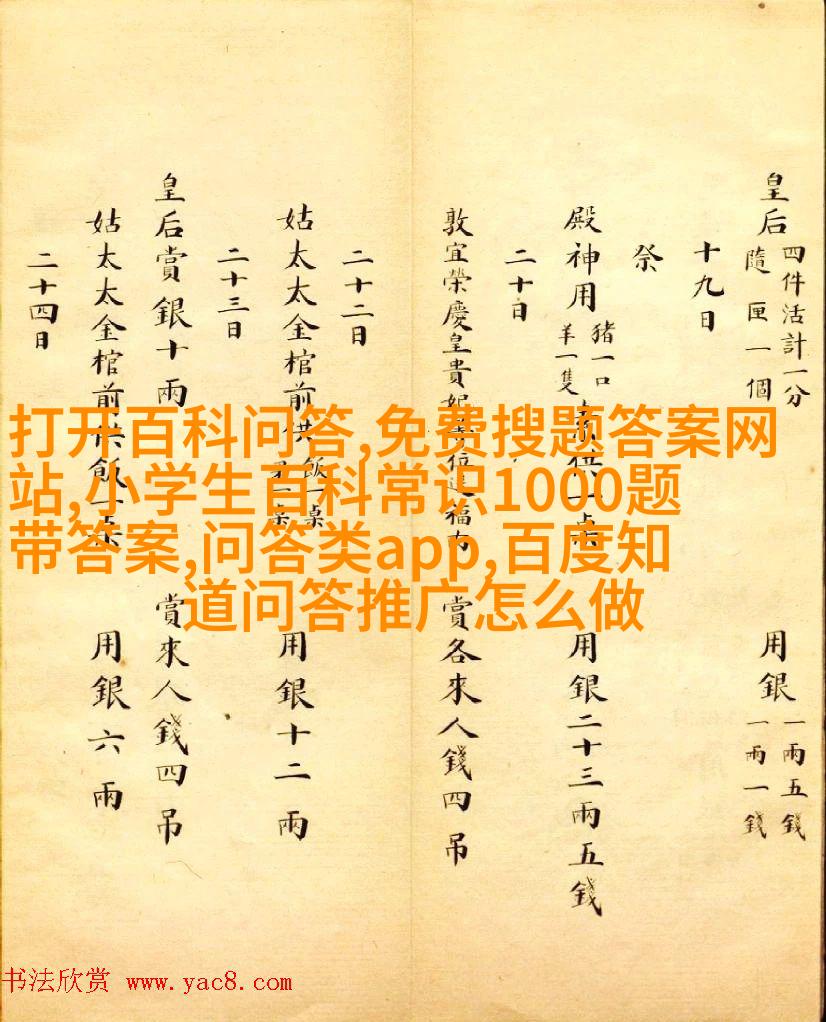 皇后
四件活計一分
隨匣一個
用銀
一兩五錢
一兩一錢
十九日
祭
殿神用
豬一口
羊一隻
用銀二十三兩五錢
二十日
敦宜榮慶皇貴妃
賞各來人錢四吊
二十二日
姑太太金棺前供
飯一桌
用銀十二兩
二十三日
皇后賞銀十兩
賞來人錢四吊
姑太太金棺前供飯一桌
用銀六兩
二十四日
打开百科问答,免费搜题答案网
站,小学生百科常识1000题
带答案,问答类app,百度知
道问答推广怎么做
书法欣赏 www.yac8.com